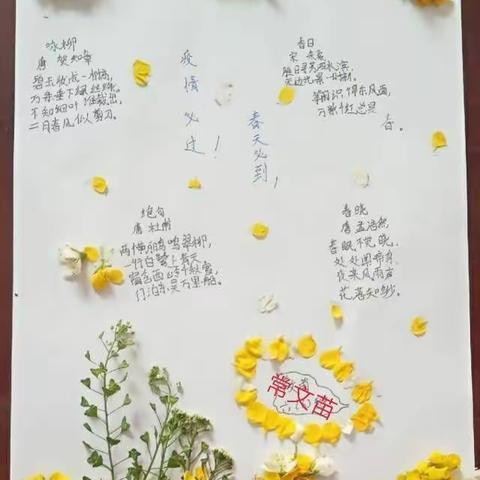 咏柳
唐 贺知章
碧玉妆成一树高,
万条垂下绿丝绦。
不知细叶谁裁出,
二月春风似剪刀。
春天必到,
疫情必过!
春日
宋 朱熹
胜日寻芳泗水滨,
无边光景一时新。
等闲识得东风面,
万紫千红总是
春。
绝句
唐 杜甫
两个黄鹂鸣翠柳,
一行白鹭上青天
窗含西岭千秋雪,
门泊东吴万里船。
春晓
唐 孟浩然
春眠不觉晓,
处处闻啼鸟
夜来风雨声
花落知多少。
常文苗